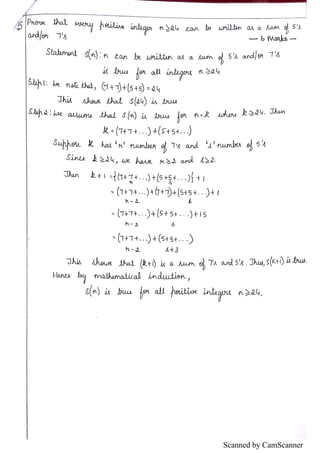 5) Prove that every positive integer n ≥ 24 can be written as a sum of 5's
and/or 7's — 6 Marks —
Statement S(n): n can be written as a sum of 5's and/or 7's
is true for all integers n ≥ 24
Step 1: we note that, (7+7)+(5+5) = 24
This shows that S(24) is true
Step 2: we assume that S(n) is true for n=k where k ≥ 24. Then
k = (7+7+...)+(5+5+...)
Suppose k has 'r' number of 7's and 's' number of 5's
Since k ≥ 24, we have r ≥ 2 and s ≥ 2.
Then k+1 = {(7+7+...)+(5+5+...)} + 1
r s
= (7+7+...)+(7+7)+(5+5+...)+1
r-2 s
= (7+7+...)+(5+5+...)+15
r-2 s
= (7+7+...)+(5+5+...)
r-2 s+3
This shows that (k+1) is a sum of 7's and 5's. Thus, S(k+1) is true.
Hence by mathematical induction,
S(n) is true for all positive integers n ≥ 24.
Scanned by CamScanner